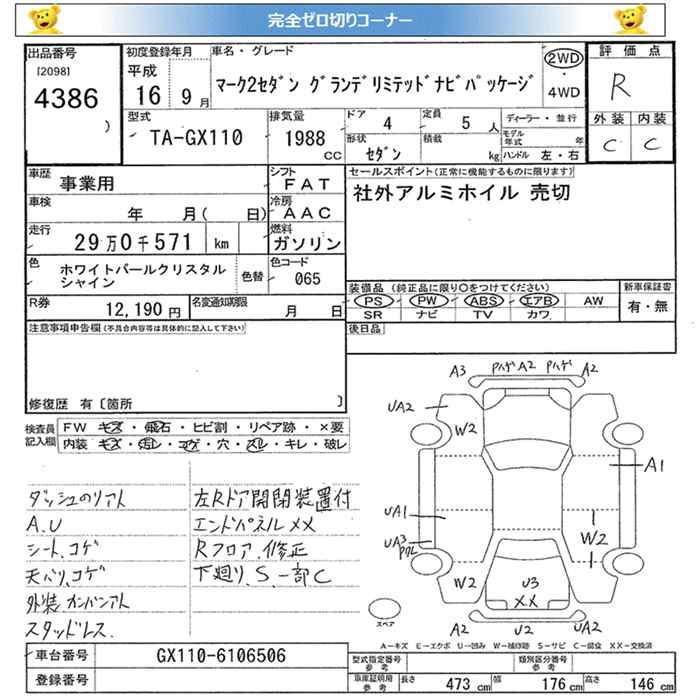 完全ゼロ切りコーナー
出品番号
[2098]
4386
)
初度登録年月
平成
16 9月
車名・グレード
マーク2セダン グランデリミテッドナビパッケージ
2WD
・
4WD
評価点
R
外装 内装
C C
型式
TA-GX110
排気量
1988
CC
ドア
4
定員
5 人
形状
セダン
積載
kg
ディーラー・並行
モデル年式 年
ハンドル 左・右
車歴
事業用
シフト
FAT
車検
年 月( 日)
冷房
AAC
走行
29万0千571 km
燃料
ガソリン
色
ホワイトパールクリスタル
シャイン
色替
色コード
065
R券
12,190 円
名変通知期限
月 日
セールスポイント(正常に機能するものに限ります)
社外アルミホイル 売切
装備品 (純正品に限り○をつけてください)
PS PW ABS エアB AW
SR ナビ TV カワ
新車保証書
有・無
後日品
注意事項申告欄(不具合内容等は具体的に記入して下さい)
修復歴 有〔箇所 〕
検査員
記入欄
FW キズ・飛石・ヒビ割・リペア跡・×要
内装 キズ・汚レ・コゲ・穴・スレ・キレ・破レ
ダッシュのリアト
A.U
シート、コゲ
天バリ、コゲ
外装 カンバンアト
スタッドレス.
左Rドア開閉装置付
エンドパネル XX
Rフロア、修正
下廻り、S、一部C
A3 Pハゲ A2 Pハゲ A2
UA2
W2
A1
UA1
UA3
W2
W2
U3
XX
A2 U2 A2
スペア
A-キズ E-エクボ U-凹み W-補修跡 S-サビ C-腐食 XX-交換済
車台番号 GX110-6106506
登録番号
型式指定番号
参考
類別区分番号
参考
車庫証明用
参考
長さ 473 cm 幅 176 cm 高さ 146 cm